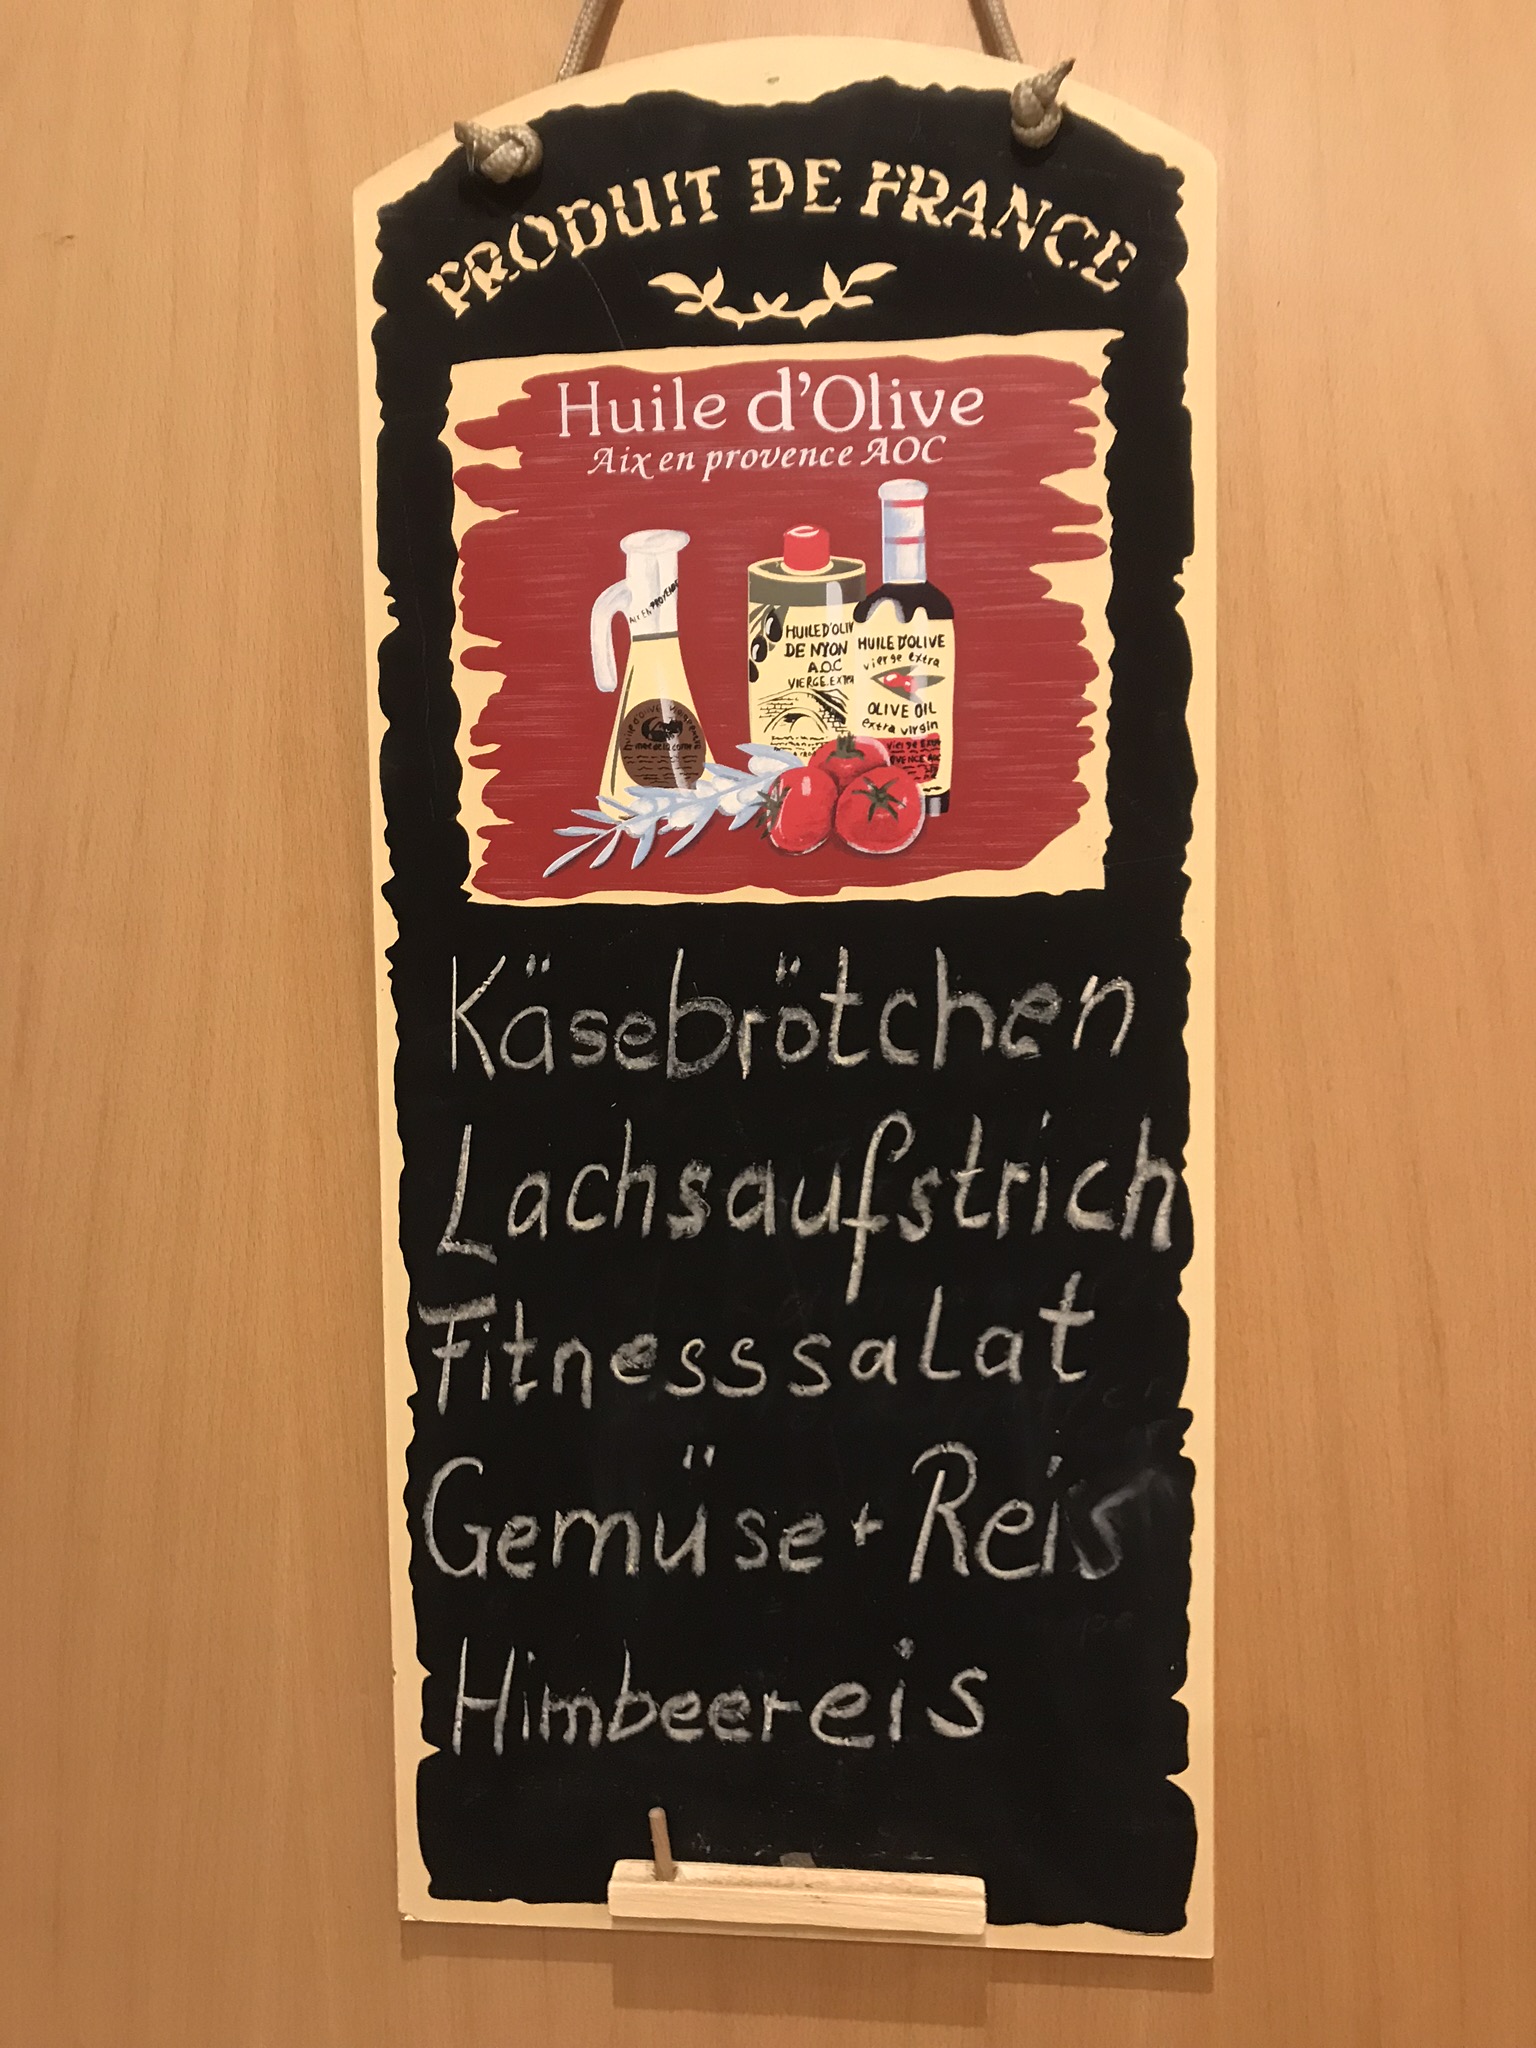 PRODUIT DE FRANCE
Huile d'Olive
Aix en provence AOC
HUILE D'OLIV
DE NYON
A.O.C
VIERGE.EXTR
HUILE D'OLIVE
vierge extra
OLIVE OIL
extra virgin
Käsebrötchen
Lachsaufstrich
Fitnesssalat
Gemüse + Reis
Himbeereis